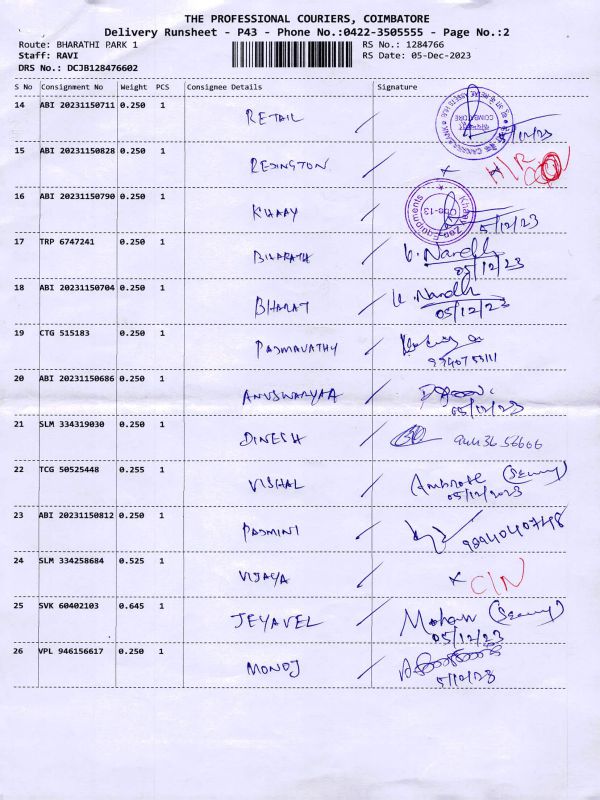 THE PROFESSIONAL COURIERS, COIMBATORE
Delivery Runsheet - P43 - Phone No.:0422-3505555 - Page No.:2
Route: BHARATHI PARK 1 RS No.: 1284766
Staff: RAVI RS Date: 05-Dec-2023
DRS No.: DCJB128476602
S No Consignment No Weight PCS Consignee Details Signature
14 ABI 20231150711 0.250 1 RETAIL /12/23
15 ABI 20231150828 0.250 1 REDINGTON x x
16 ABI 20231150790 0.250 1 KHAAY 5/12/23
17 TRP 6747241 0.250 1 BHARATH Nandh
05/12/23
18 ABI 20231150704 0.250 1 BHARAT Nandh
05/12/23
19 CTG 515183 0.250 1 PADMAVATHY
20 ABI 20231150686 0.250 1 ANUSWARYAA
05/12/23
21 SLM 334319030 0.250 1 DINESH
22 TCG 50525448 0.255 1 VISHAL Ambrose
05/12/2023
23 ABI 20231150812 0.250 1 PADMINI
24 SLM 334258684 0.525 1 VIJAYA x C/N
25 SVK 60402103 0.645 1 JEYAVEL Mohan
05/12/23
26 VPL 946156617 0.250 1 MONOJ
5/12/23